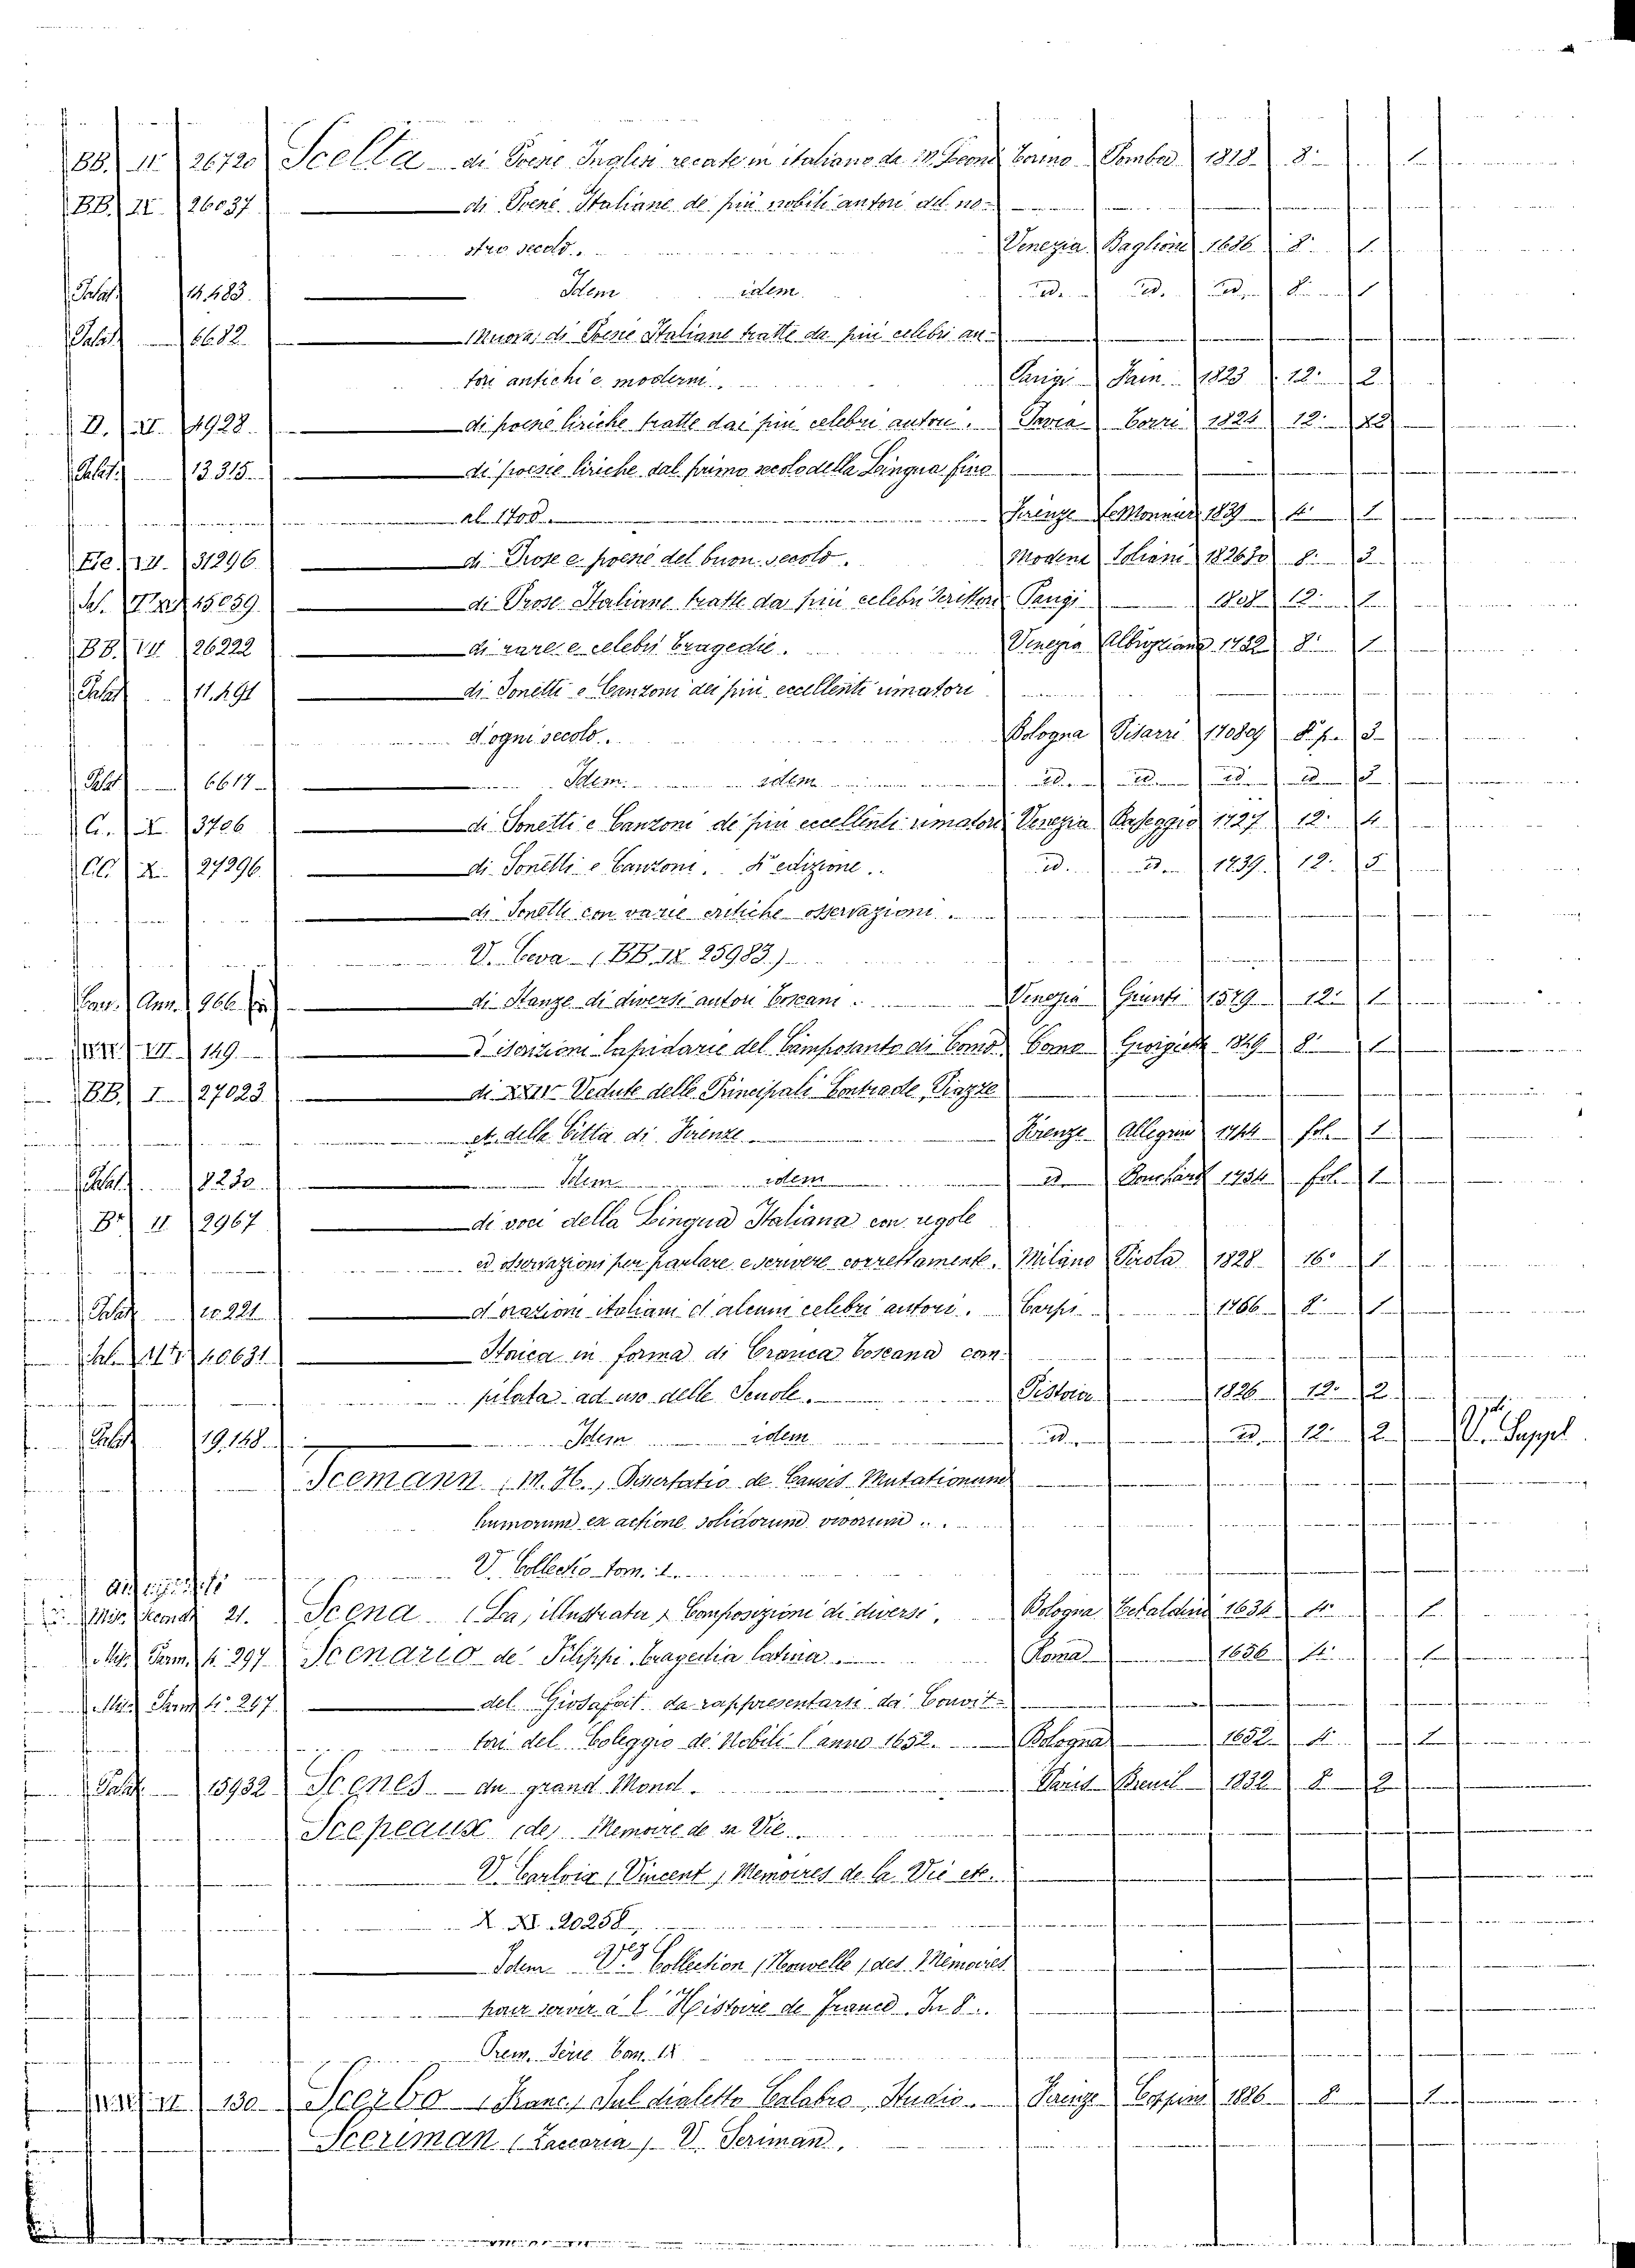 BB. II 26720 Scelta di Poesie Inglesi recate in italiano da M. Leoni Torino Pomba 1818 8° 1
BB. IX. 26037 di Poesie Italiane de' più nobili autori del no-
stro secolo. Venezia Baglioni 1686 8° 1
Palat. 14.483 Idem idem id. id. id. 8° 1
Palat. 6682 Nuova, di Poesie Italiane tratte da' più celebri au-
tori antichi e moderni. Parigi 1823 12° 2
D. 4928. di poesie liriche tratte dai più celebri autori. Pavia 1824 12°
Palat. 13315 di poesie liriche dal primo secolo della Lingua fino
al 1700. Firenze Le Monnier 1839 4° 1
31296 di Prose e poesie del buon secolo. Modena Soliani 8° 3
45059 di Prose Italiane tratte da' più celebri Scrittori Parigi 12° 1
BB. 26222 di rare e celebri tragedie. Venezia 1732 8° 1
Palat. 11.491 di Sonetti e Canzoni dei più eccellenti rimatori
d'ogni secolo. Bologna Pisarri 17089 8° p. 3
Palat. 6617 Idem idem id. id. id. id. 3
C. X. 3706 di Sonetti e Canzoni de' più eccellenti rimatori Venezia Baseggio 1727 12° 4
CC. X. 27296 di Sonetti e Canzoni. 4ª edizione. id. id. 1739. 12° 5
di Sonetti con varie critiche osservazioni.
V. Ceva (BB. IX 25983)
966 di Stanze di diversi autori toscani. Venezia Giunti 1579 12° 1
VII 149 D'iscrizioni Lapidarie del Camposanto di Como Como 1849 8° 1
BB. I 27023 di XXIV Vedute delle Principali Contrade, Piazze
et. della Città di Firenze Firenze Allegrini 1744 fol. 1
Palat. 8230 Idem idem id. Bouchard 1734 fol. 1
II 2967 di voci della Lingua Italiana con regole
ed osservazioni per parlare e scrivere correttamente. Milano Pirola 1828 16° 1
Palat. 10.221 d'orazioni italiani d'alcuni celebri autori. Carpi 1766 8° 1
40631 Stoica in forma di Cronica toscana com-
pilata ad uso delle Scuole. Pistoia 1826 12° 2
Palat. 19.148 Idem idem id. id. 12° 2 V. Suppl.
Scemann (M. H., Dissertatio de Causis Mutationum
humorum ex actione solidorum vivorum.
V. Collectio tom. 1.
Misc. 21. Scena (La, illustrata) Composizione di diversi. Bologna Tebaldini 1634 4° 1
Misc. Parm. 4° 297 Scenario de' Filippi, tragedia latina. Roma 1656 4° 1
Misc. Parm. 4° 267 del Giosafait da rappresentarsi da' Convit-
tori del Coleggio de' Nobili l'anno 1652. Bologna 1652 4° 1
Palat. 15932 Scenes du grand Mond. Paris 1832 8° 2
Scepeaux (de) Memoire de sa Vie.
V. Carloix (Vincent) Memoires de la Vie etc.
X. XI. 20258
Idem V. Collection (Nouvelle) des Memoires
pour servir à l'Histoire de France. In 8°.
Prem. Serie Tom. IX
130 Scerbo (Franc.) Sul dialetto Calabro, Studio. Firenze Coppini 1886 8° 1
Sceriman (Zaccaria) V. Seriman.